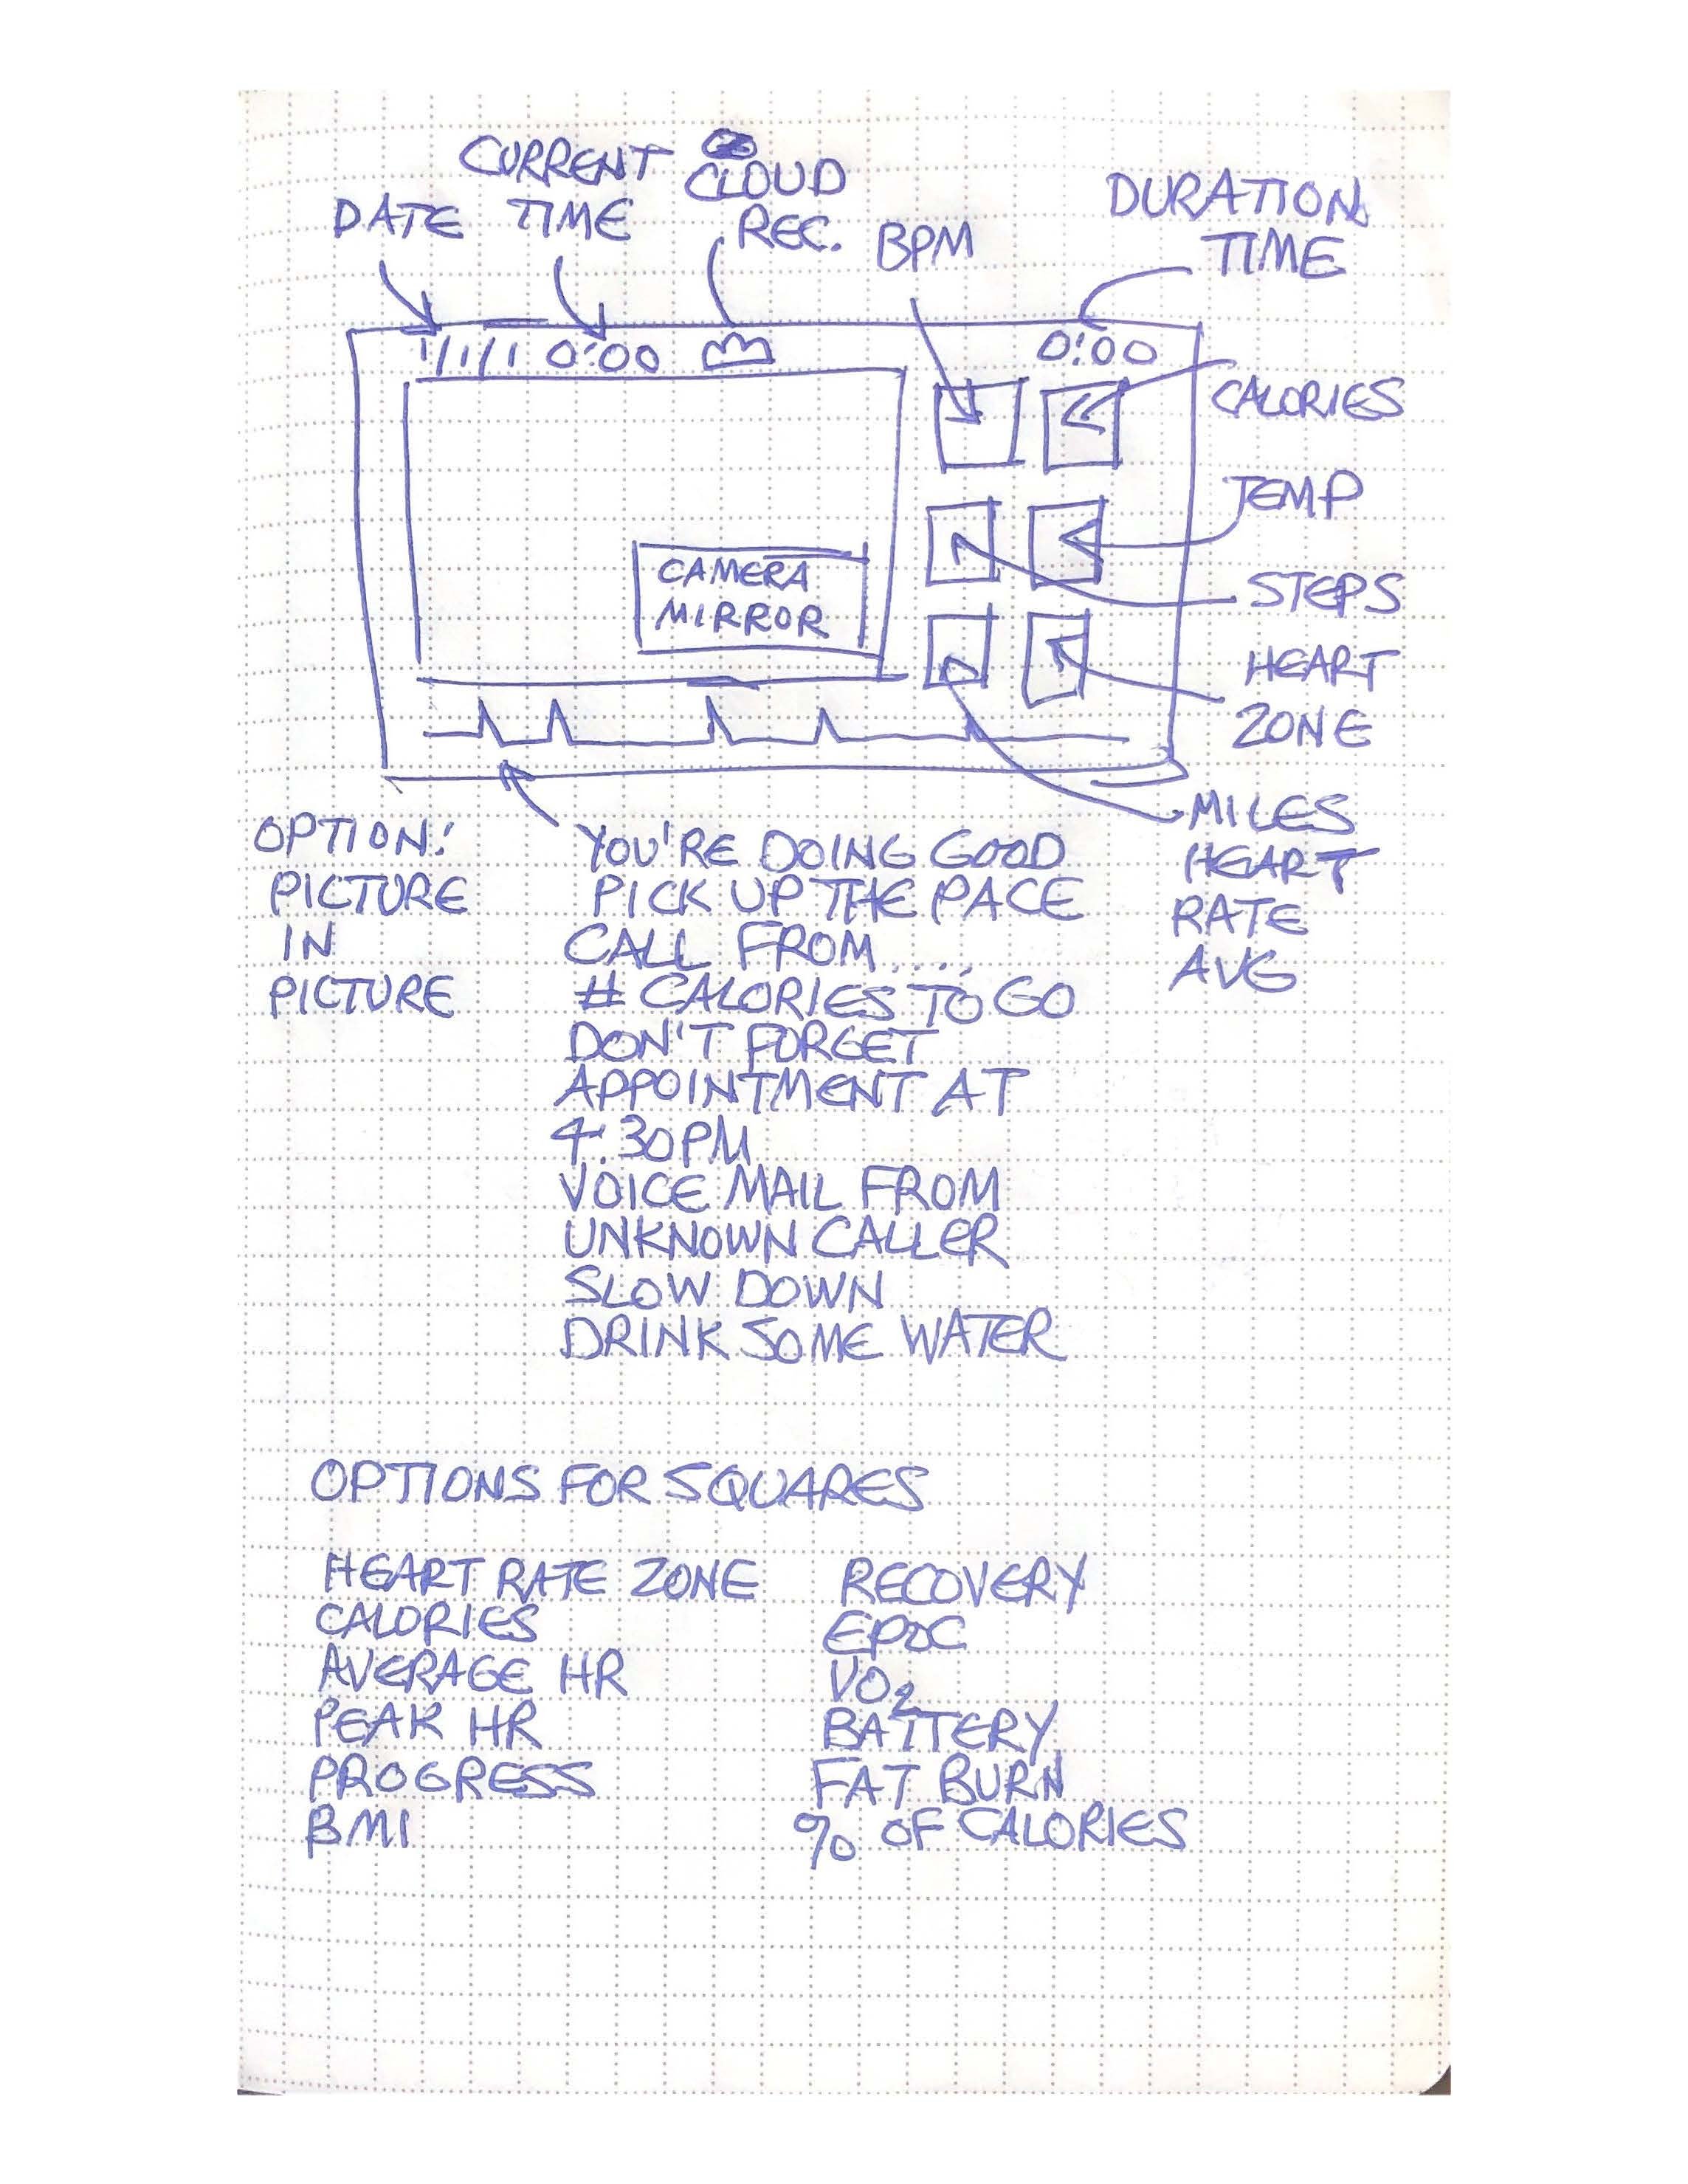 CURRENT CLOUD
DATE TIME REC. BPM
DURATION
TIME
1/1/1 0:00 0:00
CALORIES
TEMP
CAMERA
MIRROR
STEPS
HEART
ZONE
MILES
HEART
RATE
AVG
OPTION:
PICTURE
IN
PICTURE
YOU'RE DOING GOOD
PICK UP THE PACE
CALL FROM.....
# CALORIES TO GO
DON'T FORGET
APPOINTMENT AT
4:30PM
VOICE MAIL FROM
UNKNOWN CALLER
SLOW DOWN
DRINK SOME WATER
OPTIONS FOR SQUARES
HEART RATE ZONE
CALORIES
AVERAGE HR
PEAK HR
PROGRESS
BMI
RECOVERY
EPOC
VO2
BATTERY
FAT BURN
% OF CALORIES